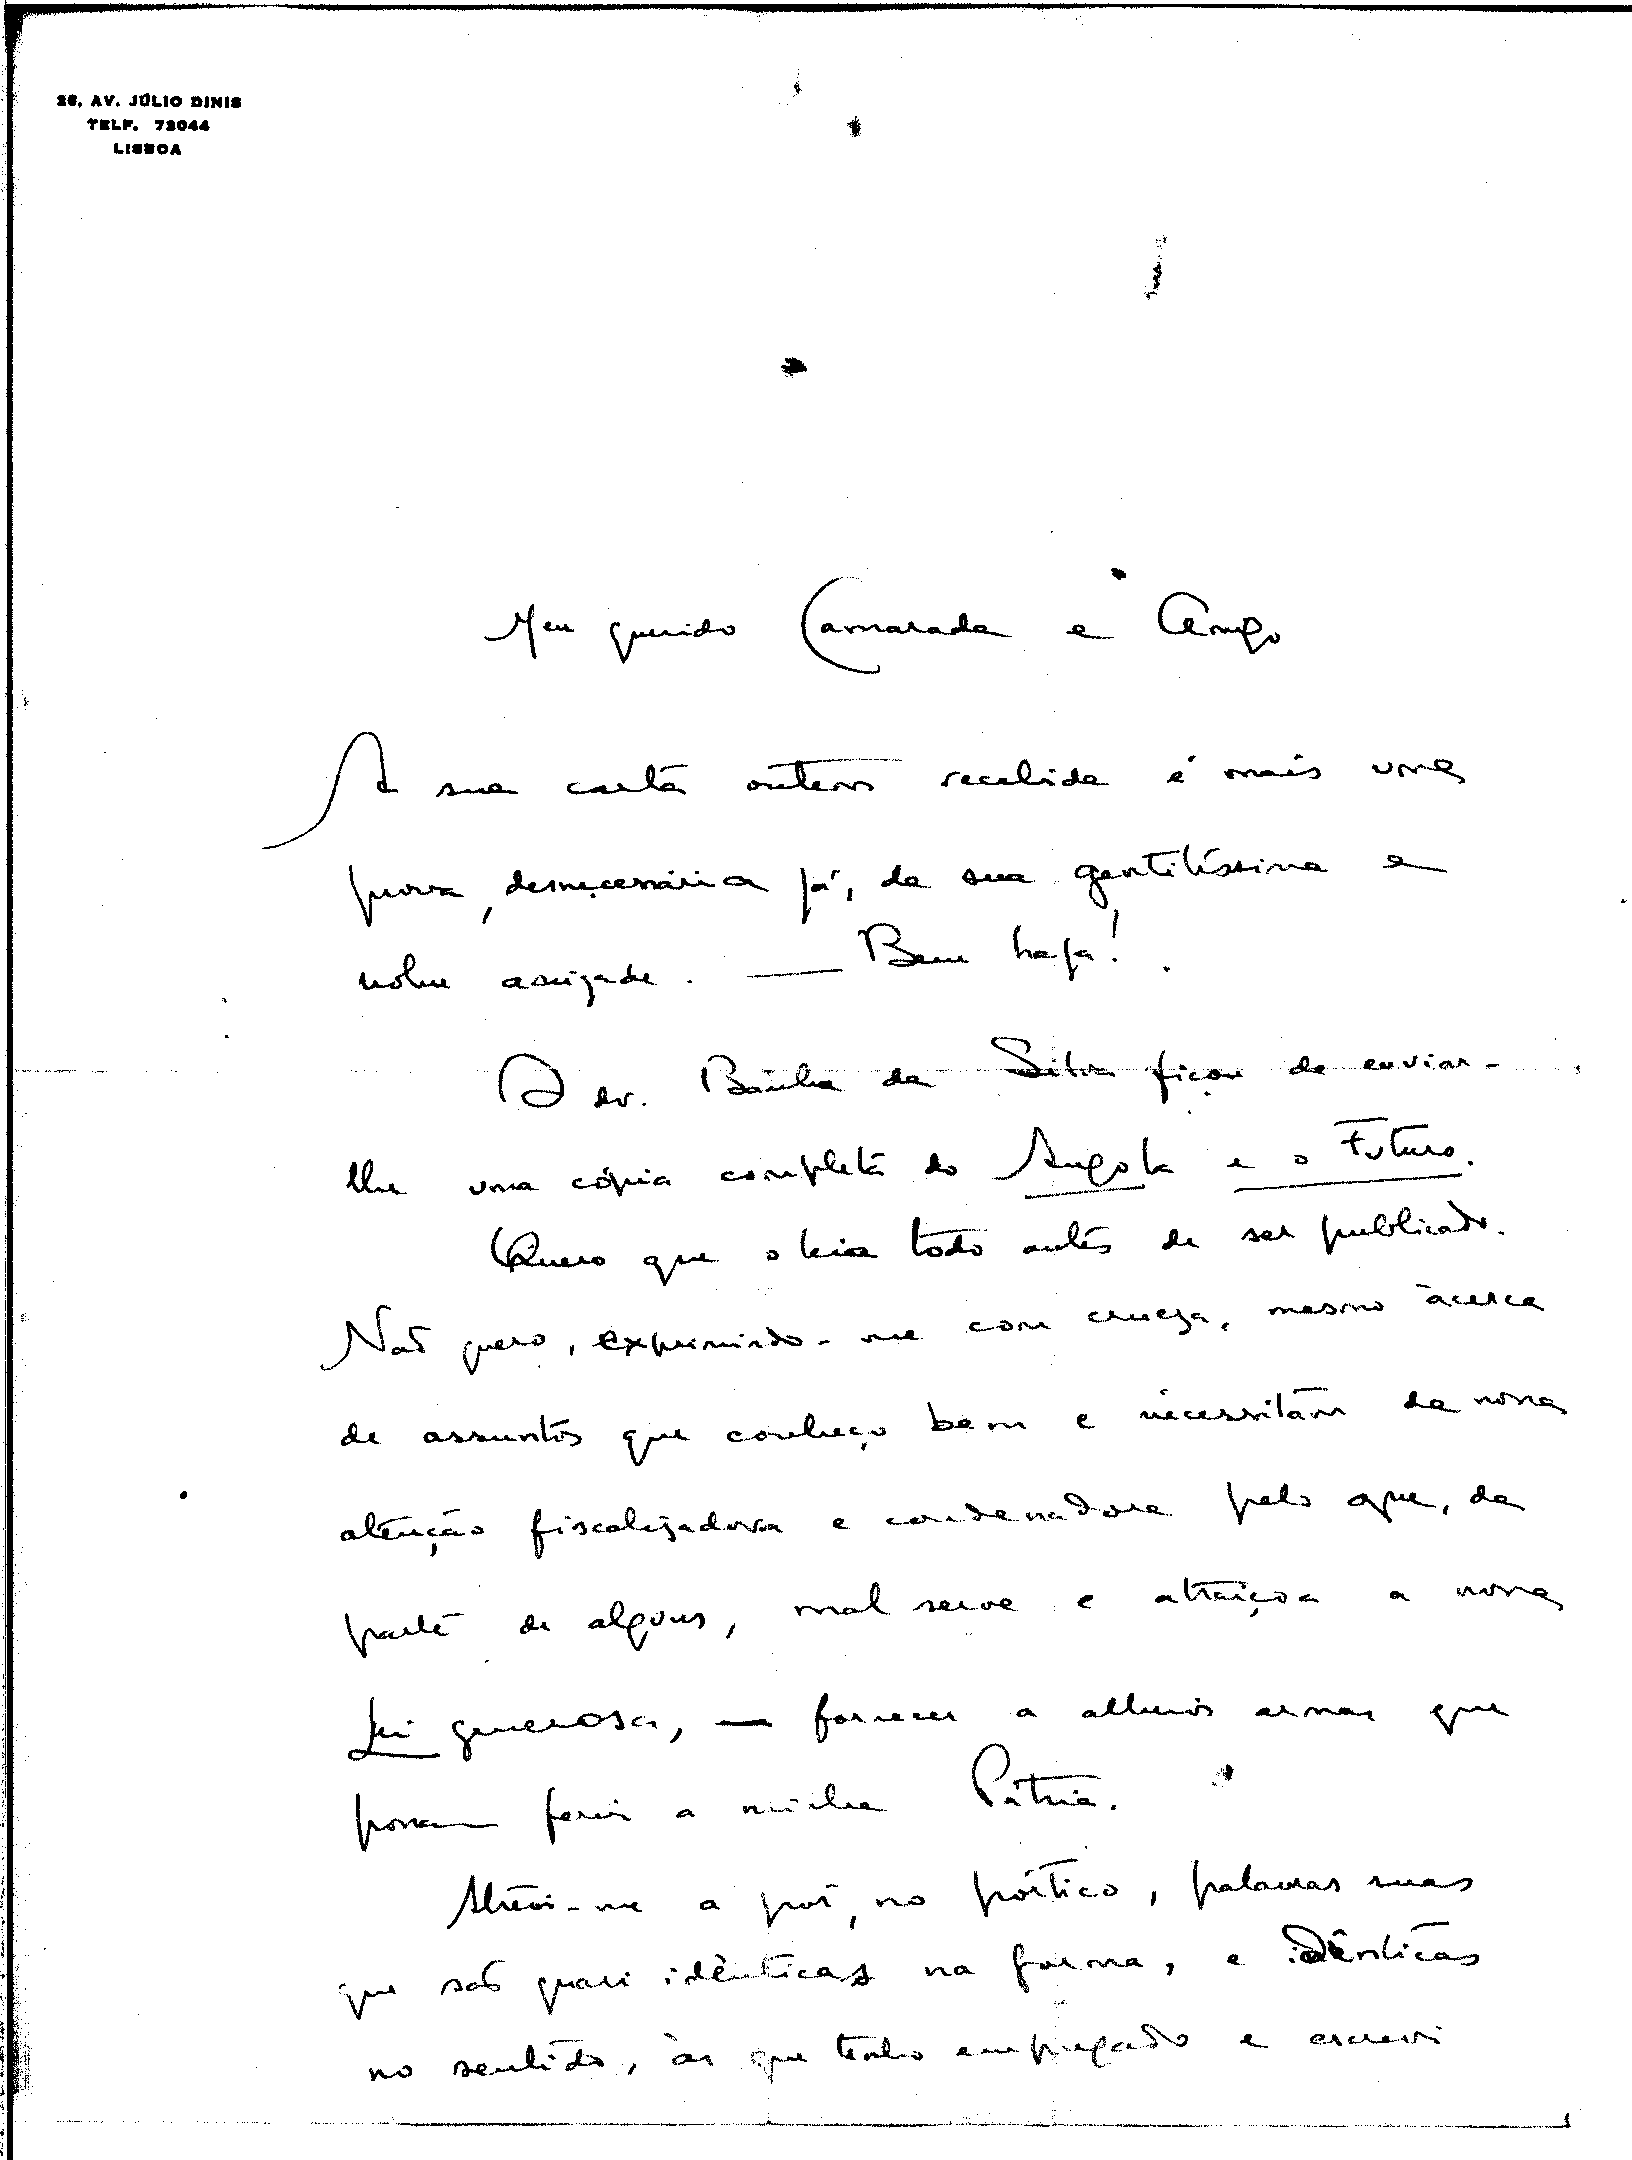 28, AV. JÚLIO DINIS
TELF. 73044
LISBOA
Meu querido Camarada e Amigo
A sua carta ontem recebida é mais uma
prova, desnecessária já, da sua gentilíssima e
nobre amizade. — Bem haja!
O dr. Banha da Silva ficou de enviar-
lhe uma cópia completa do Angola e o Futuro.
Quero que o leia todo antes de ser publicado.
Não quero, exprimindo-me com crueza, mesmo àcerca
de assuntos que conheço bem e necessitam da nossa
atenção fiscalizadora e condenadora pelo que, da
parte de alguns, mal serve e atraiçoa a nossa
Lei generosa, — fornecer a alheios armas que
possam ferir a minha Pátria.
Atrevi-me a pôr, no pórtico, palavras suas
que são quasi idênticas na forma, e idênticas
no sentido, às que tenho empregado e escrevi